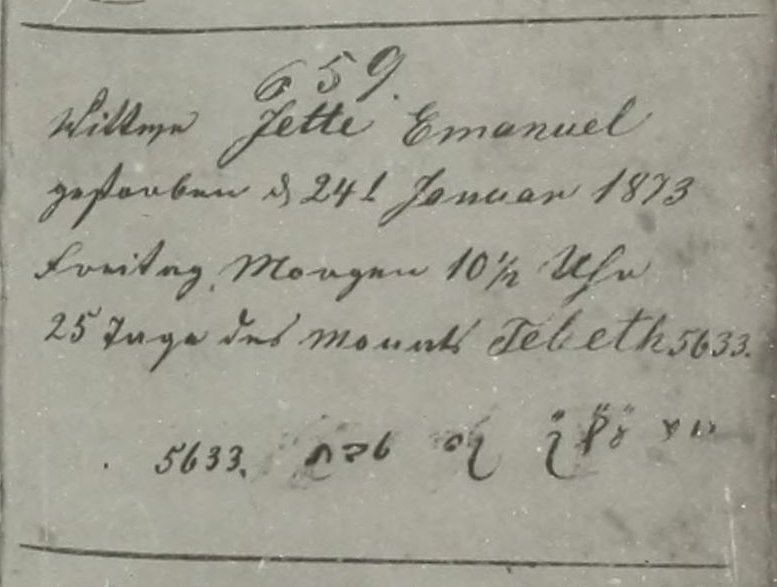 659.
Wittwe Jette Emanuel
gestorben d 24t Januar 1873
Freitag Morgen 10½ Uhr
25 Tage des Monats Tebeth 5633.
5633.